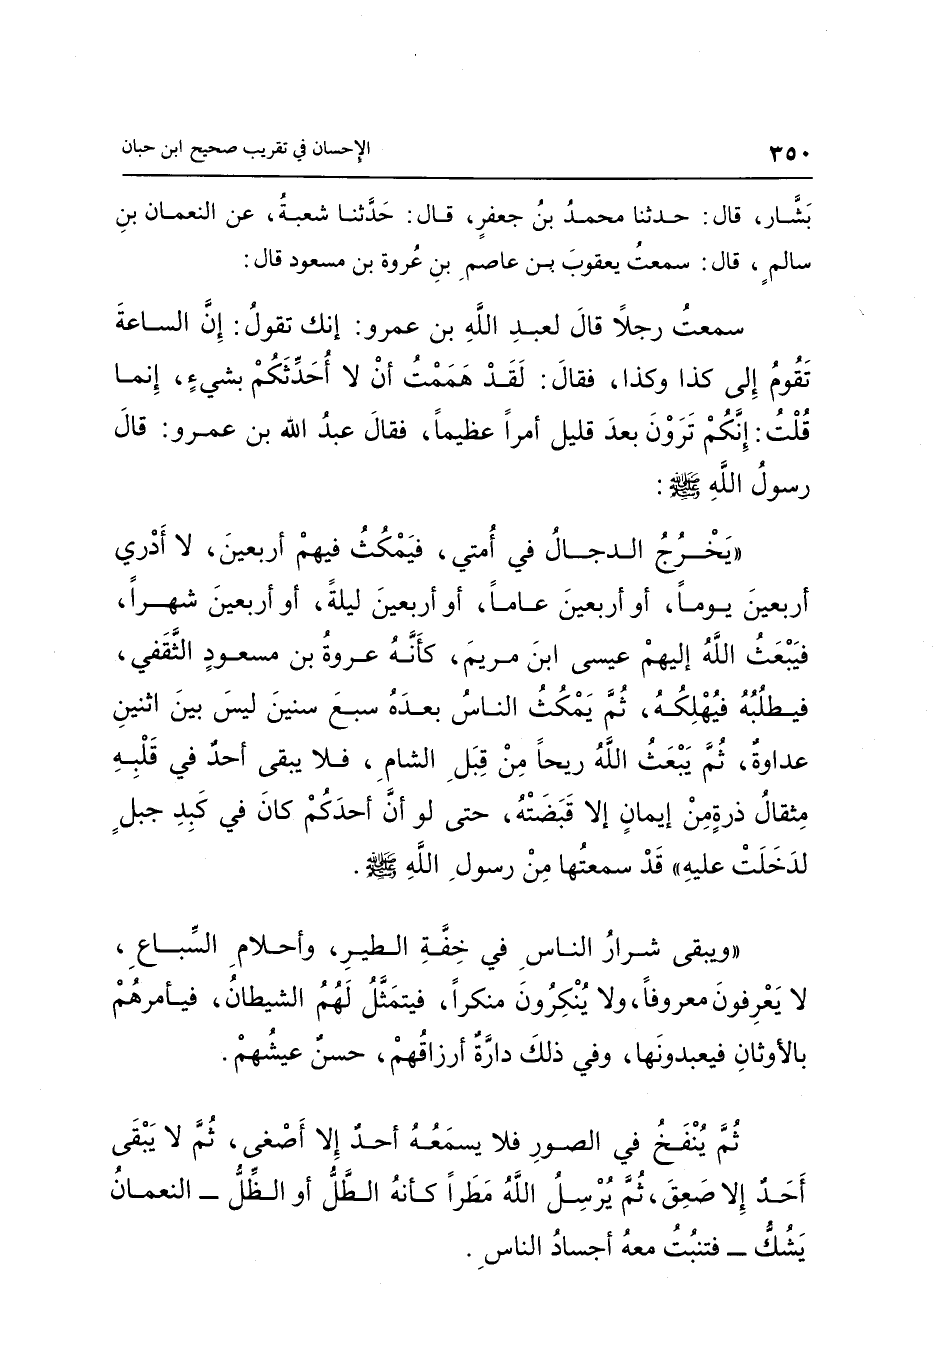 ٣٥٠ الإحسان في تقريب صحيح ابن حبان
بَشَّار، قال: حدثنا محمدُ بنُ جعفرٍ، قال: حَدَّثنا شعبةُ، عن النعمان بنِ
سالمٍ، قال: سمعتُ يعقوبَ بن عاصمِ بنِ عُروة بن مسعود قال:
سمعتُ رجلاً قالَ لعبدِ اللَّهِ بن عمرو: إنك تقولُ: إنَّ الساعةَ
تَقُومُ إلى كذا وكذا، فقالَ: لَقَدْ هَمَمْتُ أنْ لا أُحَدِّثَكُمْ بشيءٍ، إنما
قُلْتُ: إنَّكُمْ تَرَوْنَ بعدَ قليل أمراً عظيماً، فقالَ عبدُ الله بن عمرو: قالَ
رسولُ اللَّهِ ﷺ:
«يَخْرُجُ الدجالُ في أُمتي، فيَمْكُثُ فيهمْ أربعينَ، لا أَدْري
أربعينَ يوماً، أو أربعينَ عاماً، أو أربعينَ ليلةً، أو أربعينَ شهراً،
فيَبْعَثُ اللَّهُ إليهمْ عيسى ابنَ مريمَ، كأنَّهُ عروةُ بن مسعودٍ الثَّقَفي،
فيطلُبُهُ فيُهْلِكُهُ، ثُمَّ يَمْكُثُ الناسُ بعدَهُ سبعَ سنينَ ليسَ بينَ اثنينِ
عداوةٌ، ثُمَّ يَبْعَثُ اللَّهُ ريحاً مِنْ قِبَلِ الشامِ، فلا يبقى أحدٌ في قَلْبِهِ
مِثقالُ ذرةٍ مِنْ إيمانٍ إلا قَبَضَتْهُ، حتى لو أنَّ أحدَكُمْ كانَ في كَبِدِ جبلٍ
لدَخَلَتْ عليهِ» قَدْ سمعتُها مِنْ رسولِ اللَّهِ ﷺ.
«ويبقى شرارُ الناسِ في خِفَّةِ الطيرِ، وأحلامِ السِّباعِ،
لا يَعْرِفونَ معروفاً، ولا يُنْكِرُونَ منكراً، فيتمَثَّلُ لَهُمُ الشيطانُ، فيأمرهُمْ
بالأوثانِ فيعبدونَها، وفي ذلكَ دارَّةٌ أرزاقُهمْ، حسنٌ عيشُهمْ.
ثُمَّ يُنْفَخُ في الصورِ فلا يسمَعُهُ أحدٌ إلا أَصْغى، ثُمَّ لا يَبْقَى
أَحَدٌ إلا صَعِقَ، ثُمَّ يُرْسِلُ اللَّهُ مَطَراً كأنهُ الطَّلُّ أو الظِّلُّ ــ النعمانُ
يَشُكُّ ــ فتنبُتُ معهُ أجسادُ الناسِ.